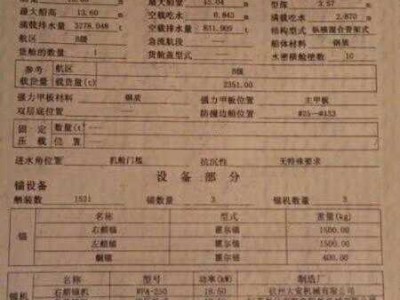 最大船高 13.60 m 空载吃水 0.843 m 满载吃水 2.870 m
满载排水量 3278.048 t 空载排水量 831.909 t 结构型式 纵横混合骨架式
航区 B级 急流航段 船体材料 钢质
货舱的数量 1 货装盖型式 水密横舱壁数 10
参考 航区 B级
载货量 载货量(t) 2351.00
强力甲板材料 钢质 强力甲板位置 主甲板
双层底位置 防撞边舱位置 #25~#153
固定 数量(t)
压载 位置
进水角位置 机舱门槛 抗沉性 无特殊要求
设备部分
锚设备
舾装数 1531 锚数量 3 锚机数量 3
锚 名称 型式 重量(kg)
右艏锚 霍尔锚 1500.00
左艏锚 霍尔锚 1500.00
艉锚 霍尔锚 400.00
名称 型号 功率(kW) 制造厂
右艏锚机 18.50